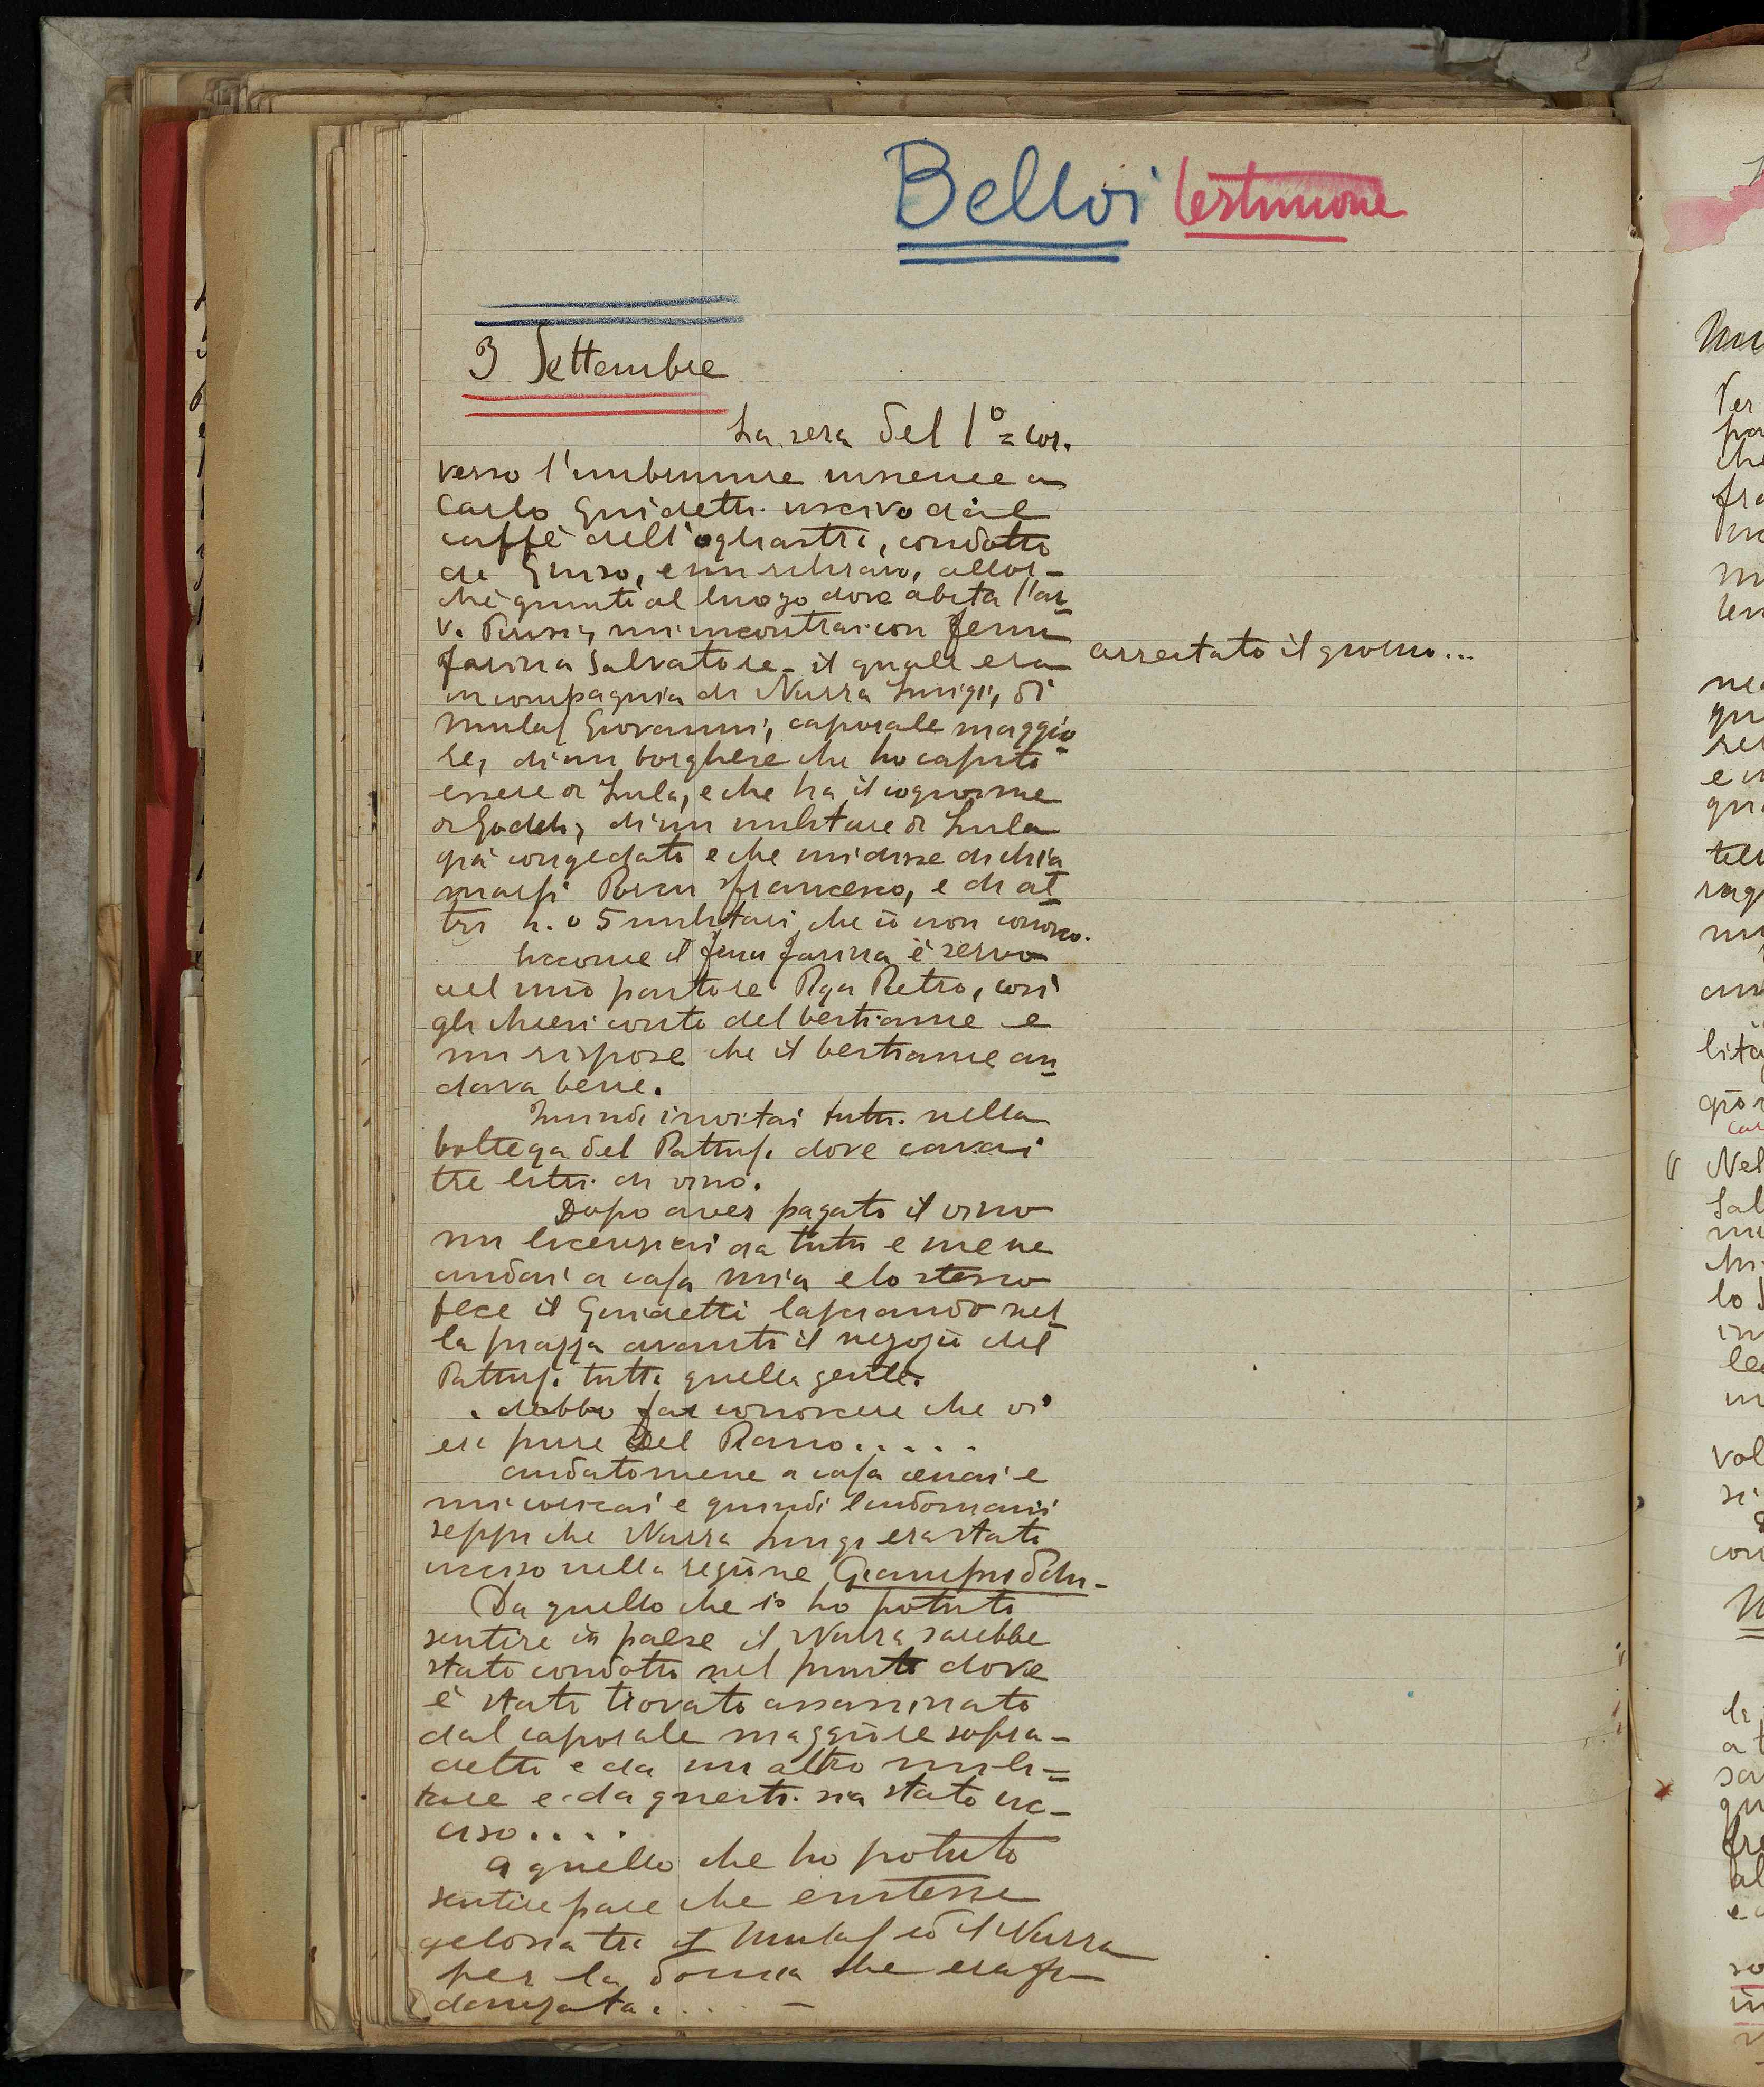 Belloi testimone
3 Settembre
La sera del 1° = cor.
verso l'imbrunire insieme a
Carlo Guidetti uscivo dal
caffè dell'ogliastra, condotto
da Guiso, e mi ritiravo, allor-
chè giunti al luogo dove abita l'av
v. Pirisi, mi incontrai con
Farina Salvatore - il quale era
arrestato il giorno...
in compagnia di Nurra Luigi, di
Mulas Giovanni, caporale maggio
re, di un borghese che ho capito
essere di Lula, e che ha il cognome
di Goddi, di un militare di Lula
già congedato e che mi disse di chia
marsi Porcu Francesco, e di al
tri 4 o 5 militari che io non conosco.
Siccome il Farina è servo
del mio pastore Piga Pietro, così
gli chiesi conto del bestiame e
mi rispose che il bestiame an
dava bene.
Quindi invitai tutti nella
bottega del Pattusi dove cavai
tre litri di vino.
Dopo aver pagato il vino
mi licenziai da tutti e me ne
andai a casa mia e lo stesso
fece il Guidetti lasciando nel
la piazza avanti il negozio del
Pattusi tutta quella gente.
debbo far conoscere che vi
era pure Del Piano.....
andatomene a casa cenai e
mi coricai e quindi l'indomani
seppi che Nurra Luigi era stato
ucciso nella regione
Da quello che io ho potuto
sentire in paese il Nurra sarebbe
stato condotto nel punto dove
è stato trovato assassinato
dal caporale maggiore sopra-
detto e da un altro mili=
tare e da questi sia stato uc-
ciso....
A quello che ho potuto
sentire pare che esistesse
gelosia tra il Mulas ed il Nurra
per la donna che era fi
danzata....